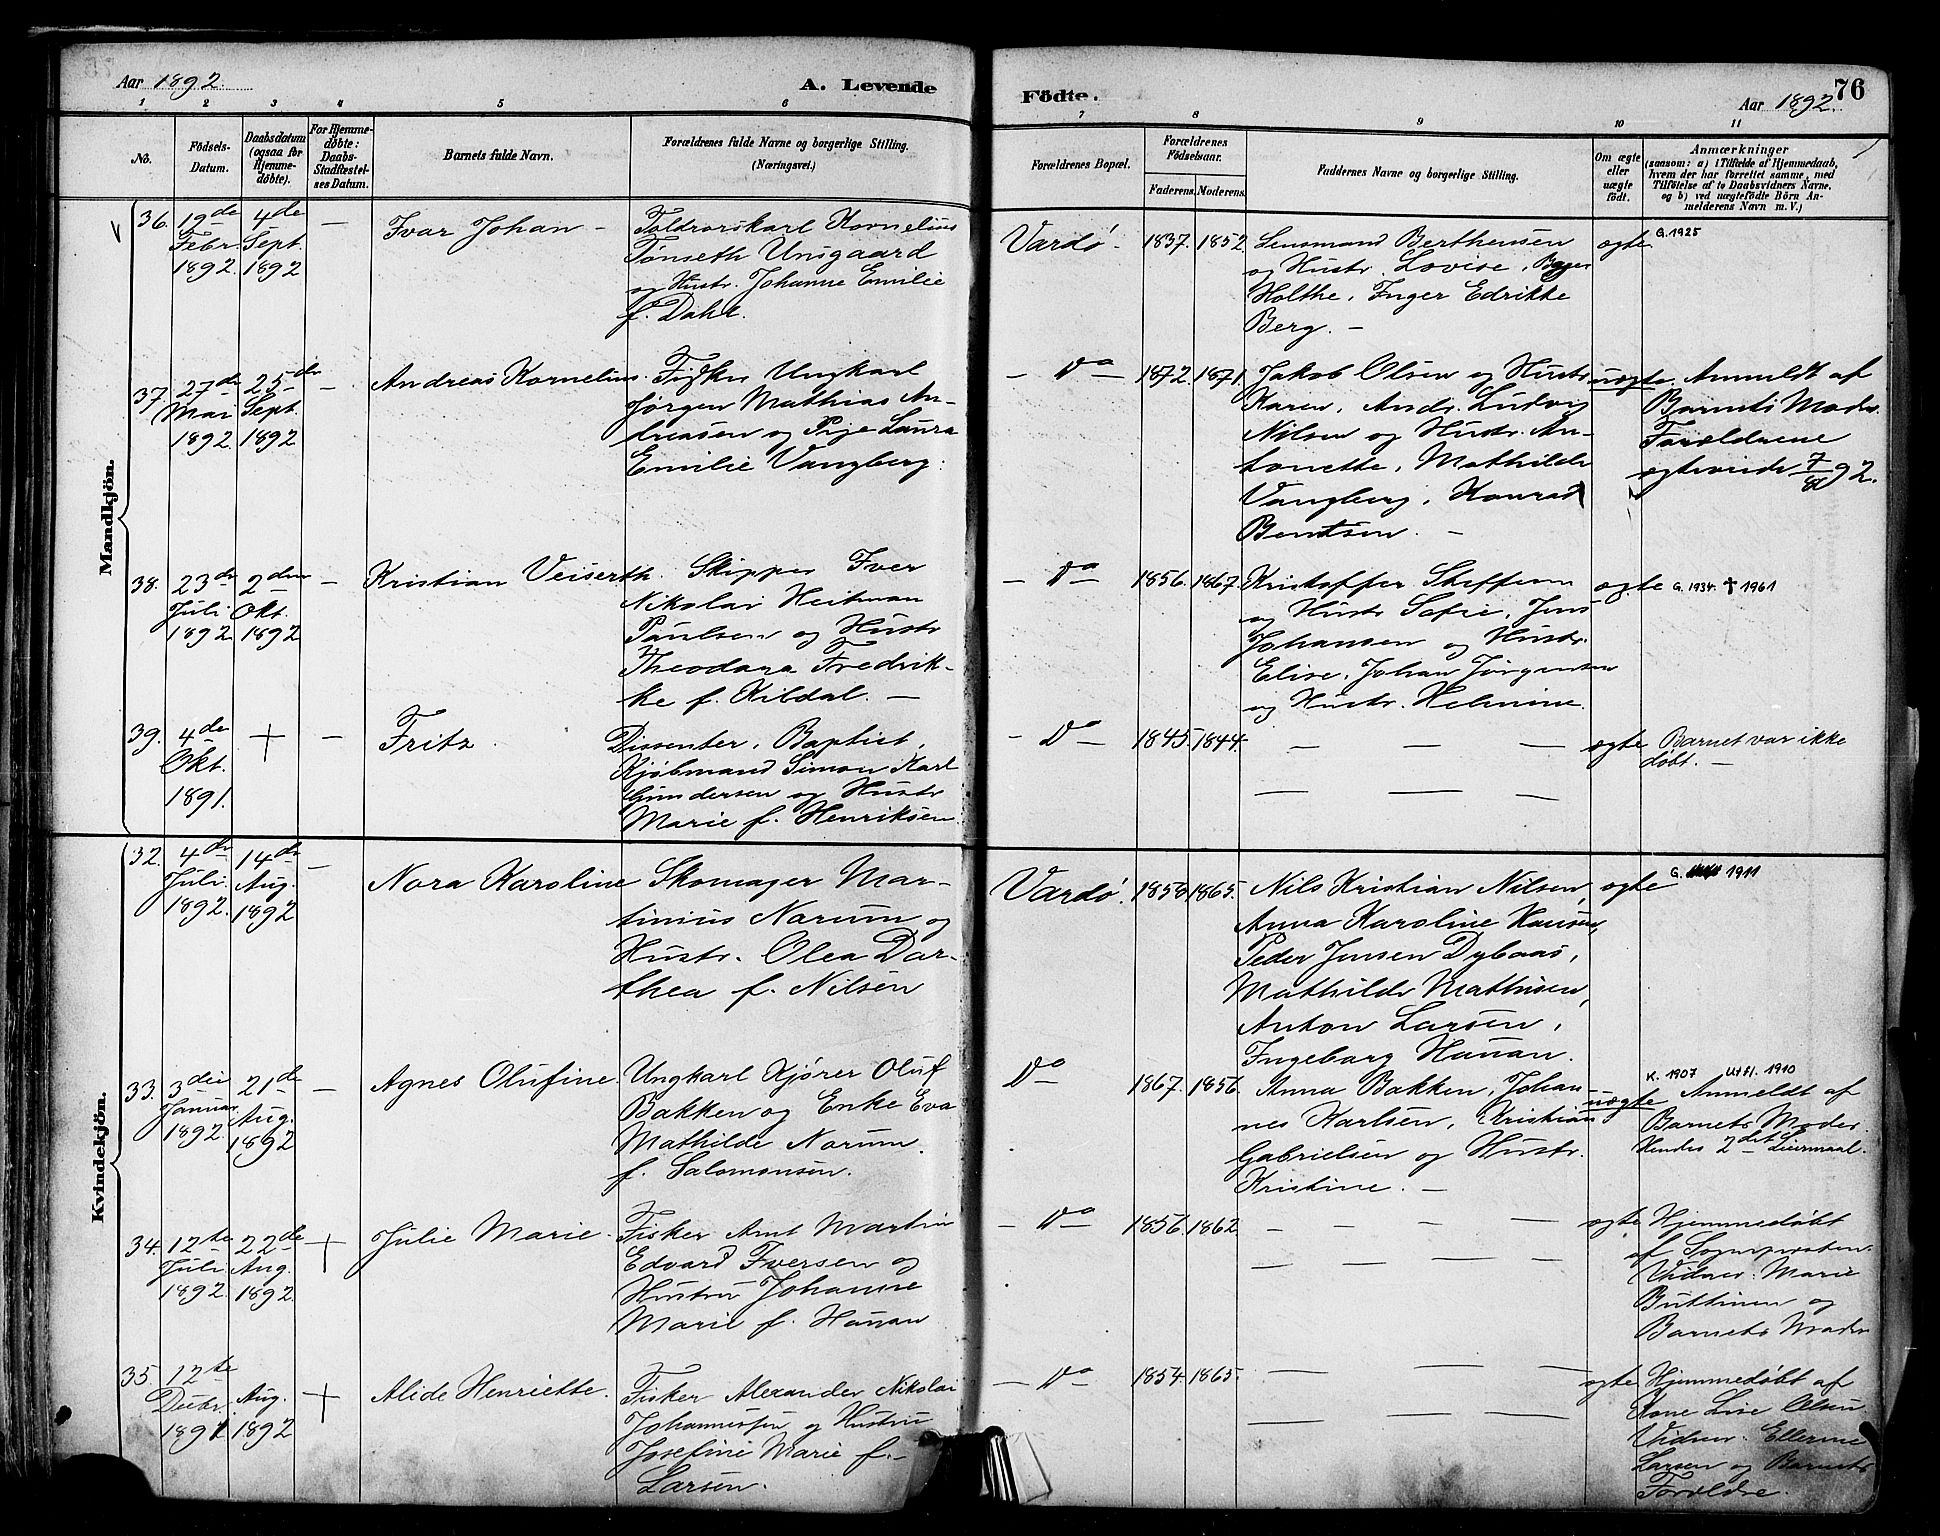 Aar 1892. A. Levende
Födte. Aar 1892. 76
1 2 3 4 5 6
7 8 9 10 11
No.
Födsels-
Datum.
Daabsdatum
(ogsaa for
Hjemme-
døbte).
For Hjemme-
døbte:
Daabs-
Stadfæstel-
ses Datum.
Barnets fulde Navn.
Forældrenes fulde Navne og borgerlige Stilling.
(Næringsvei.)
Forældrenes Bopæl.
Forældrenes
Födselsaar.
Faderens. Moderens.
Faddernes Navne og borgerlige Stilling.
Om ægte
eller
uægte
födt.
Anmærkninger
(saasom: a) i Tilfælde af Hjemmedaab,
hvem der har forrettet samme, med
Tilföielse af to Daabsvidners Navne,
og b) ved uægtefödte Börn An-
melderens Navn m. V.)
Mandkjön.
36. 19de
Febr
1892.
4de
Sept.
1892
—
Ivar Johan —
Toldrorskarl Kornelius
Tønseth Unsgaard
og Hustr. Johanne Emilie
f. Dahl.
Vardø. 1837. 1852.
Lensmand Berthensen
og Hustr. Lovise,
Holthe, Inger Edrikke
Berg. —
egte
G. 1925
37. 27de
Mai
1892.
25de
Sept.
1892
—
Andreas Kornelius.
Fisker Ungkarl
Jørgen Mathias An-
dreasen og Pige Laura
Emilie Vangberg.
— Do — 1872. 1871.
Jakob Olsen og Hustr
Karen, Andr. Ludvig
Nilsen og Hustr. An-
tonette, Mathilde
Vangberg, Konrad
Berntsen. —
uegte.
Anmeldt af
Barnets Moder.
Forældrene
egteviede 7/8 92.
38. 23de
Juli
1892
2den
Okt.
1892
—
Kristian Veiserth.
Skipper Iver
Nikolai Heitman
Paulsen og Hustr
Theodora Fredrik-
ke f. Kildal. —
— Do — 1856. 1867.
Kristoffer Steffensen
og Hustr Sofie, Jens
Johansen og Hustr.
Elise, Johan Jørgensen
og Hustr. Helmine.
egte
G. 1934. † 1961
39. 4de
Okt.
1891.
+
—
Fritz.
Dissenter, Baptist,
Kjøbmand Simon Karl
Gundersen og Hustr
Marie f. Henriksen.
— Do — 1845. 1844.
— — —
— — —
egte
Barnet var ikke
døbt. —
Kvindekjön.
32. 4de
Juli.
1892.
14de
Aug.
1892
—
Nora Karoline
Skomager Mar-
tinius Narum og
Hustr. Olea Dor-
thea f. Nilsen
Vardø. 1858. 1865.
Nils Kristian Nilsen,
Anna Karoline Hansen,
Peder Jensen Dybaas,
Mathilde Mathisen,
Anton Larsen,
Ingeborg Hauan.
egte
G. 1911
33. 3die
Januar
1892.
21de
Aug.
1892
—
Agnes Olufine.
Ungkarl Kjører Oluf
Bakken og Enke Eva
Mathilde Narum.
f. Salomonsen.
Do — 1867. 1856.
Anna Bakken, Johan-
nes Karlsen, Kristian
Gabrielsen og Hustr.
Kristine. —
uegte
K. 1907 Utfl. 1910
Anmeldt af
Barnets Moder.
Hendes 2det Leiermaal.
34. 12te
Juli
1892.
22de
Aug.
1892.
+
Julie Marie.
Fisker Arnt Martin
Edvard Iversen og
Hustru Johanne
Marie f. Hauan
— Do — 1856. 1862.
— — — —
— — — —
egte
Hjemmedøbt
af Sognepresten.
Vidner: Marie
Buttinen og
Barnets Moder
35. 12te
Decbr.
1891
Aug.
1892
+
Alide Henriette.
Fisker Alexander Nikolai
Johannessen og Hustru
Josefine Marie f.
Larsen.
— Do — 1854. 1865.
— — —
— — —
egte
Hjemmedøbt af
Kone Lise Olsen
Vidner: Ellerine
Larsen og Barnets
Forældre.